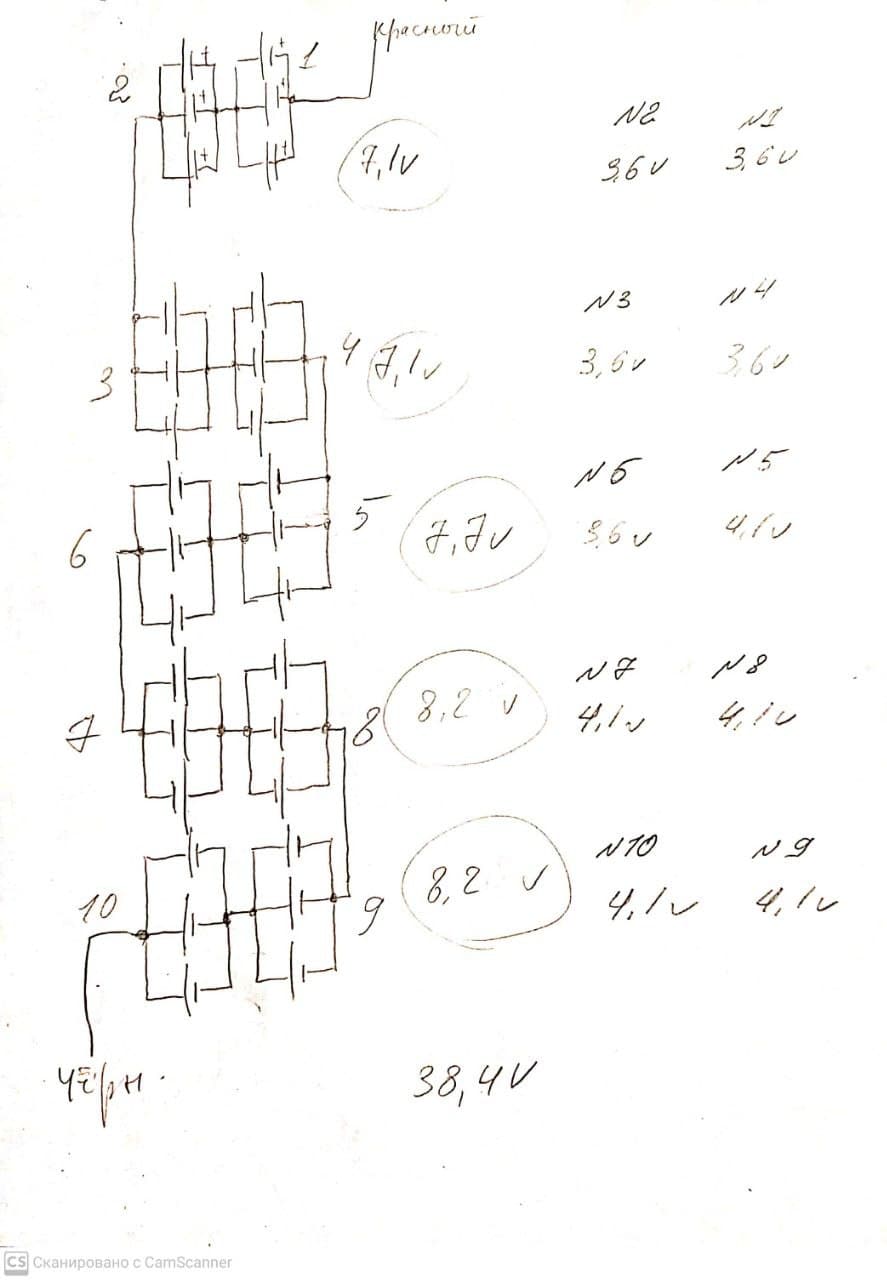 Красный
2 1
N2 N1
7,1v 3,6v 3,6v
N3 N4
3 4 7,1v 3,6v 3,6v
N6 N5
6 5 7,7v 3,6v 4,1v
N7 N8
7 8 8,2 v 4,1v 4,1v
N10 N9
10 9 8,2 v 4,1v 4,1v
Чёрн.
38,4V
CS Сканировано с CamScanner